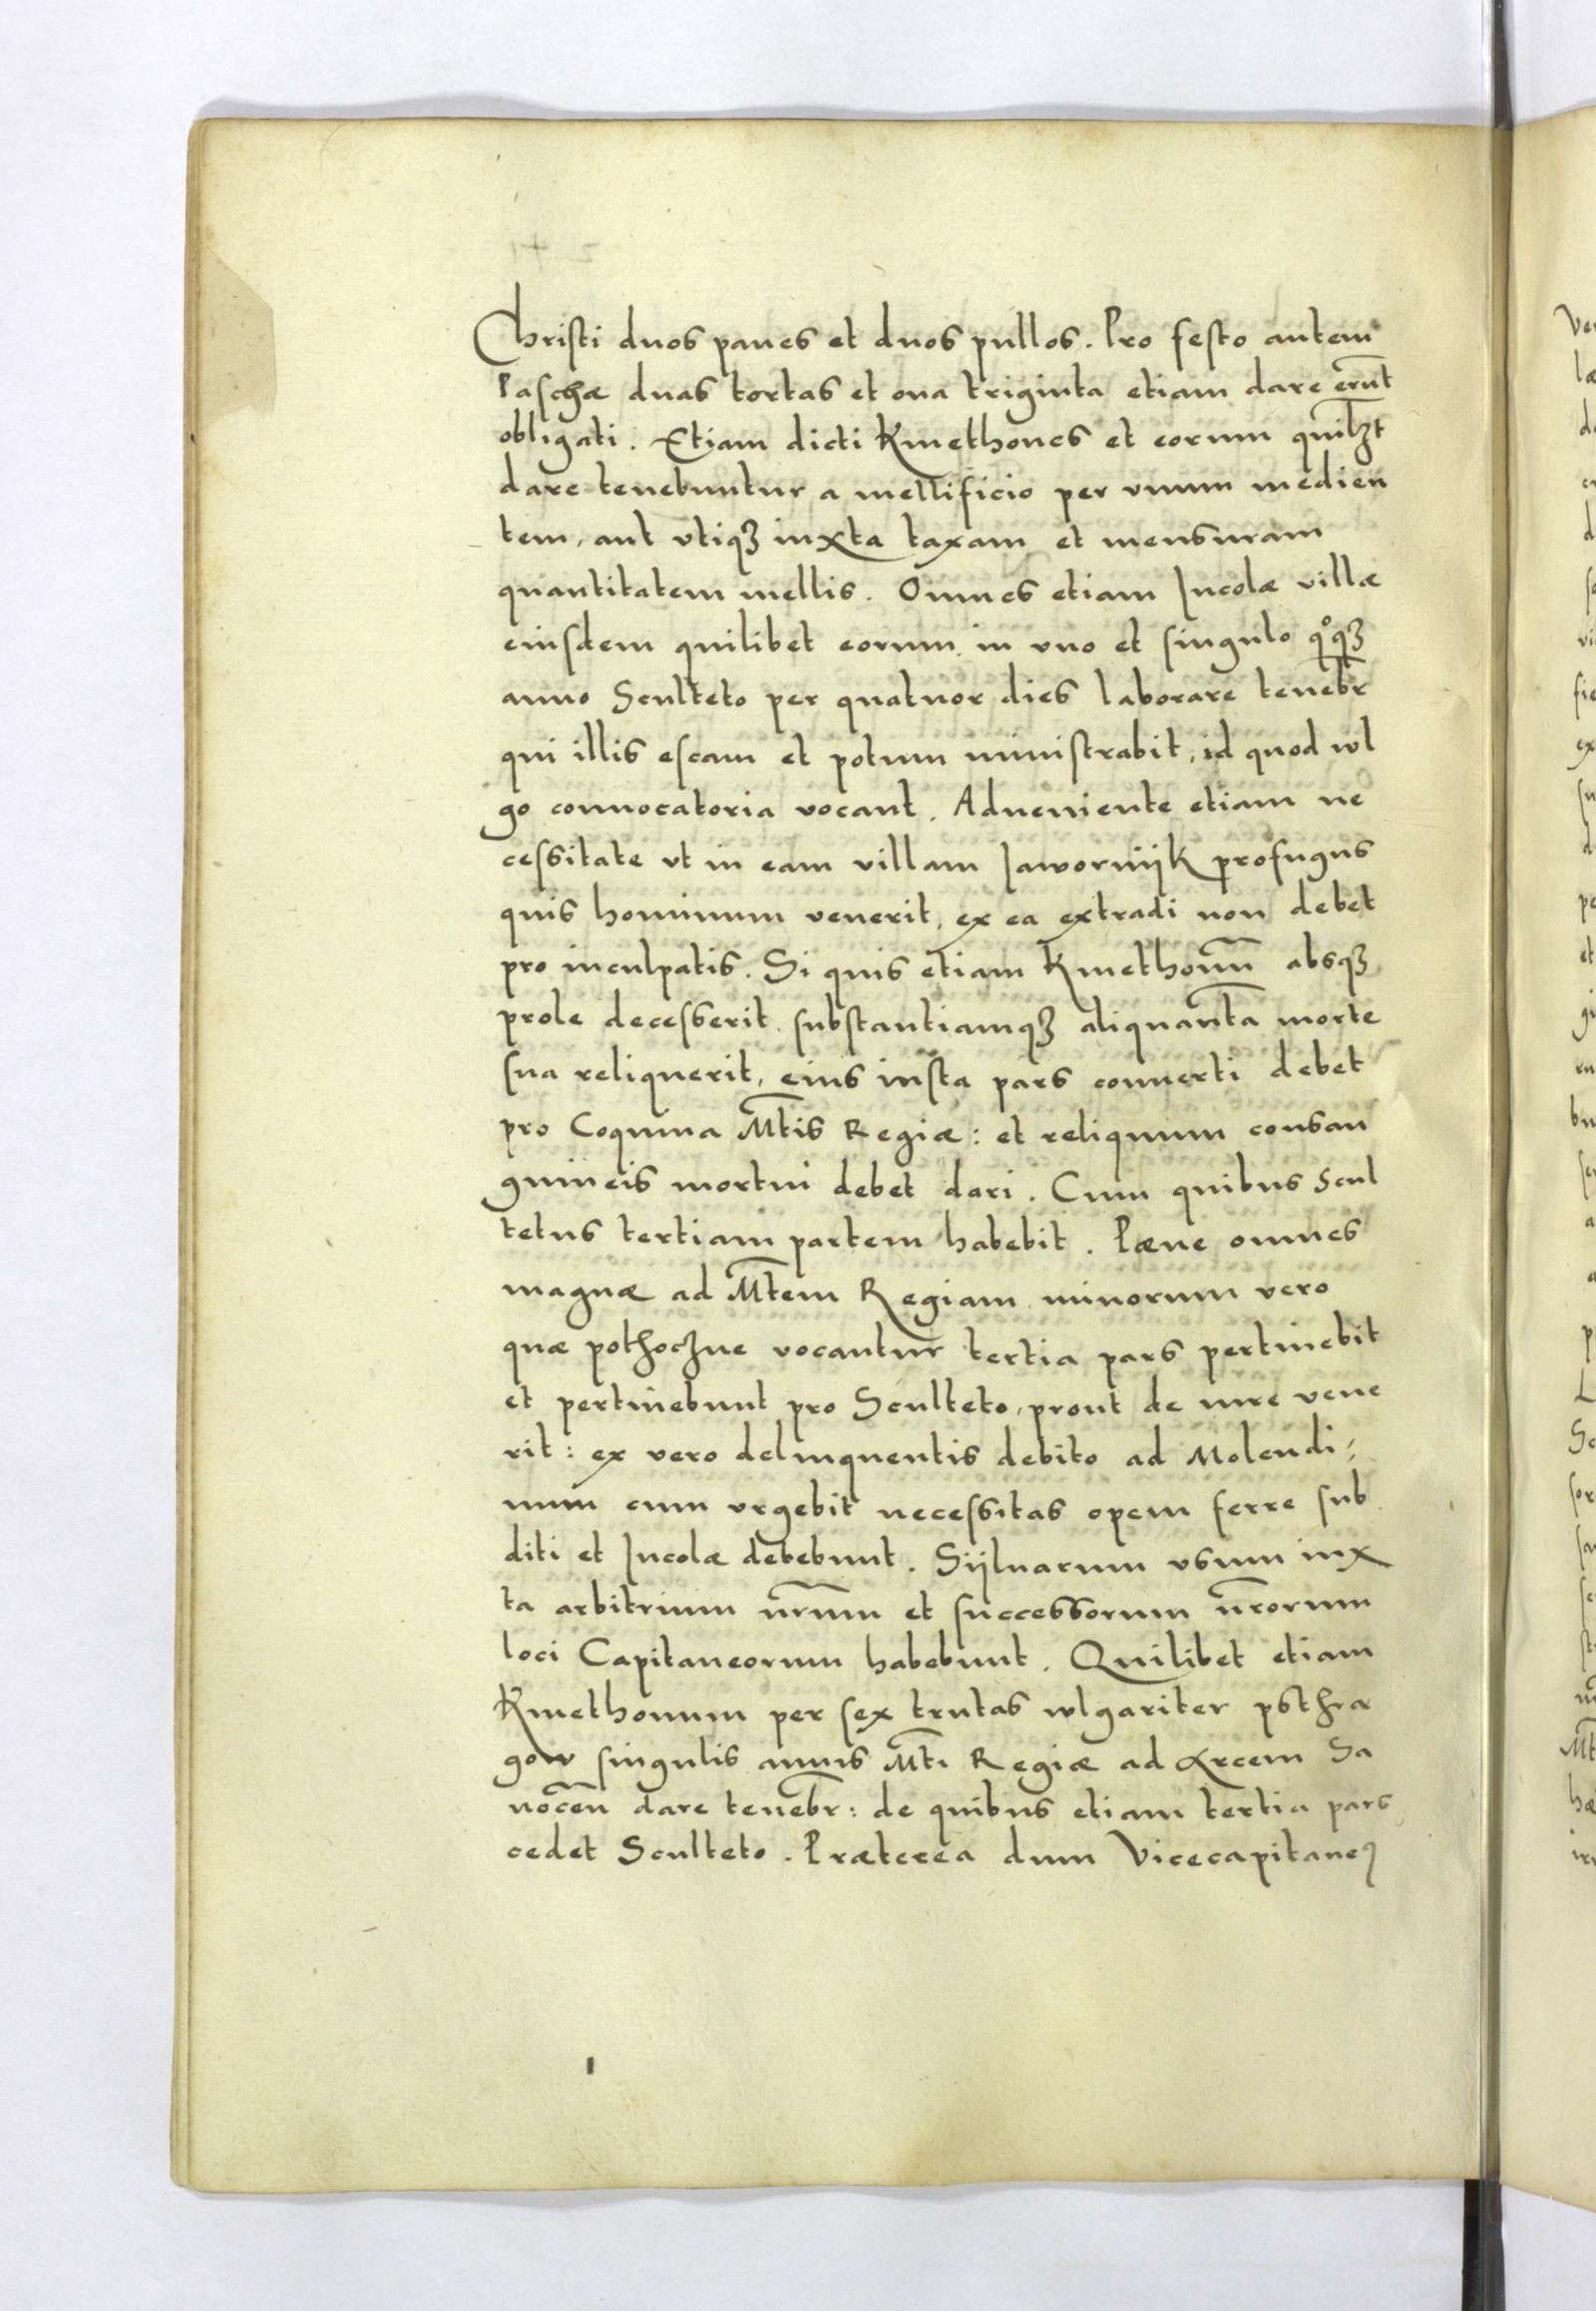 Christi duos panes et duos pullos. Pro festo autem
Paschæ duas tortas et oua triginta etiam dare erūt
obligati. Etiam dicti Kmethones et eorum quilꝫt
dare tenebuntur a mellificio per vnum medien
tem, aut vtiqꝫ iuxta taxam et mensuram
quantitatem mellis. Omnes etiam Incolæ villæ
eiusdem quilibet eorum in vno et singulo qͦqꝫ
anno Sculteto per quatuor dies laborare teneb̄r
qui illis escam et potum ministrabit, id quod wl
go conuocatoria vocant. Adueniente etiam ne
cessitate vt in eam villam Jawornijk profugus
quis hominum venerit, ex ea extradi non debet
pro inculpatis. Si quis etiam Kmethonū absqꝫ
prole decesserit substantiamqꝫ aliquanta morte
sua reliquerit, eius iusta pars conuerti debet
pro Coquina Mt̄is Regiæ: et reliquum consan
guineis mortui debet dari. Cum quibus Scul
tetus tertiam partem habebit. Pæne omnes
magnæ ad Mt̄em Regiam minorum vero
quæ pothoczne vocantur tertia pars pertinebit
et pertinebunt pro Sculteto, prout de iure vene
rit: ex vero delinquentis debito ad Molendi,
num cum vrgebit necessitas opem ferre sub
diti et Incolæ debebunt. Sijluarum vsum iux
ta arbitrium nr̄um et successorum nr̄orum
loci Capitaneorum habebunt. Quilibet etiam
Kmethonum per sex trutas wlgariter psthra
gow singulis annis Mt̄i Regiæ ad Arcem Sa
noc̄en dare teneb̄r: de quibus etiam tertia pars
cedet Sculteto. Præterea dum Vicecapitaneꝰ